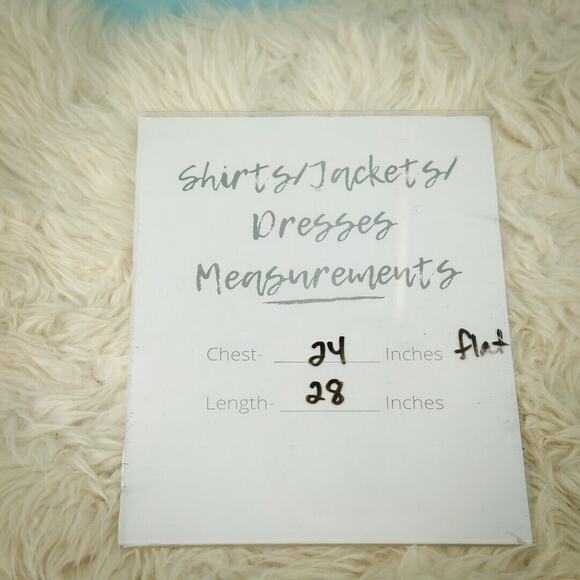 Shirts/Jackets/
Dresses
Measurements
Chest- 24 Inches flat
Length- 28 Inches